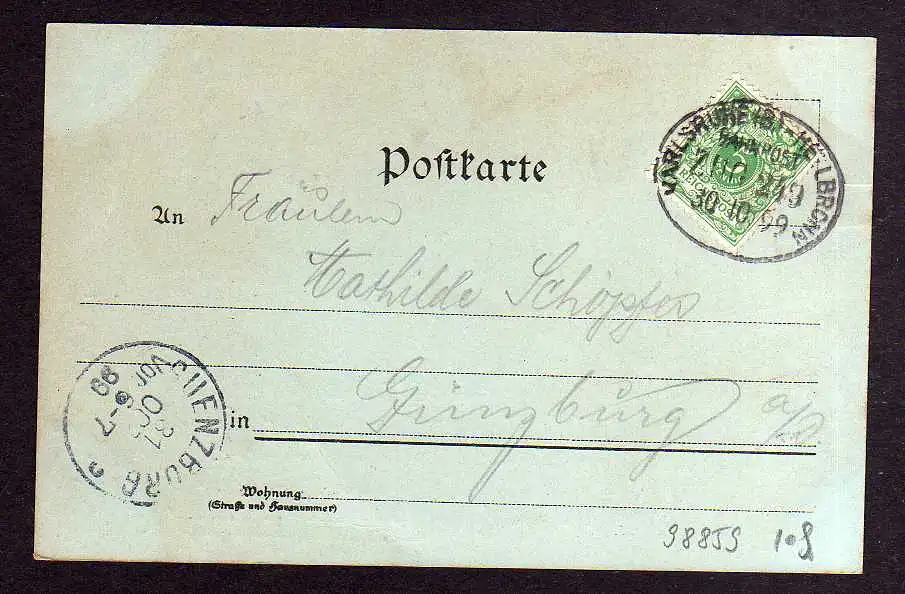 Postkarte
KARLSRUHE (B.)-HEILBRONN
BAHNPOST
ZUG 219
30 10 99
An Fräulein
Mathilde Schöpfer
in Günzburg a/D
GUENZBURG
31 OCT
6-7
99
Wohnung
(Straße und Hausnummer)
98859 10.9